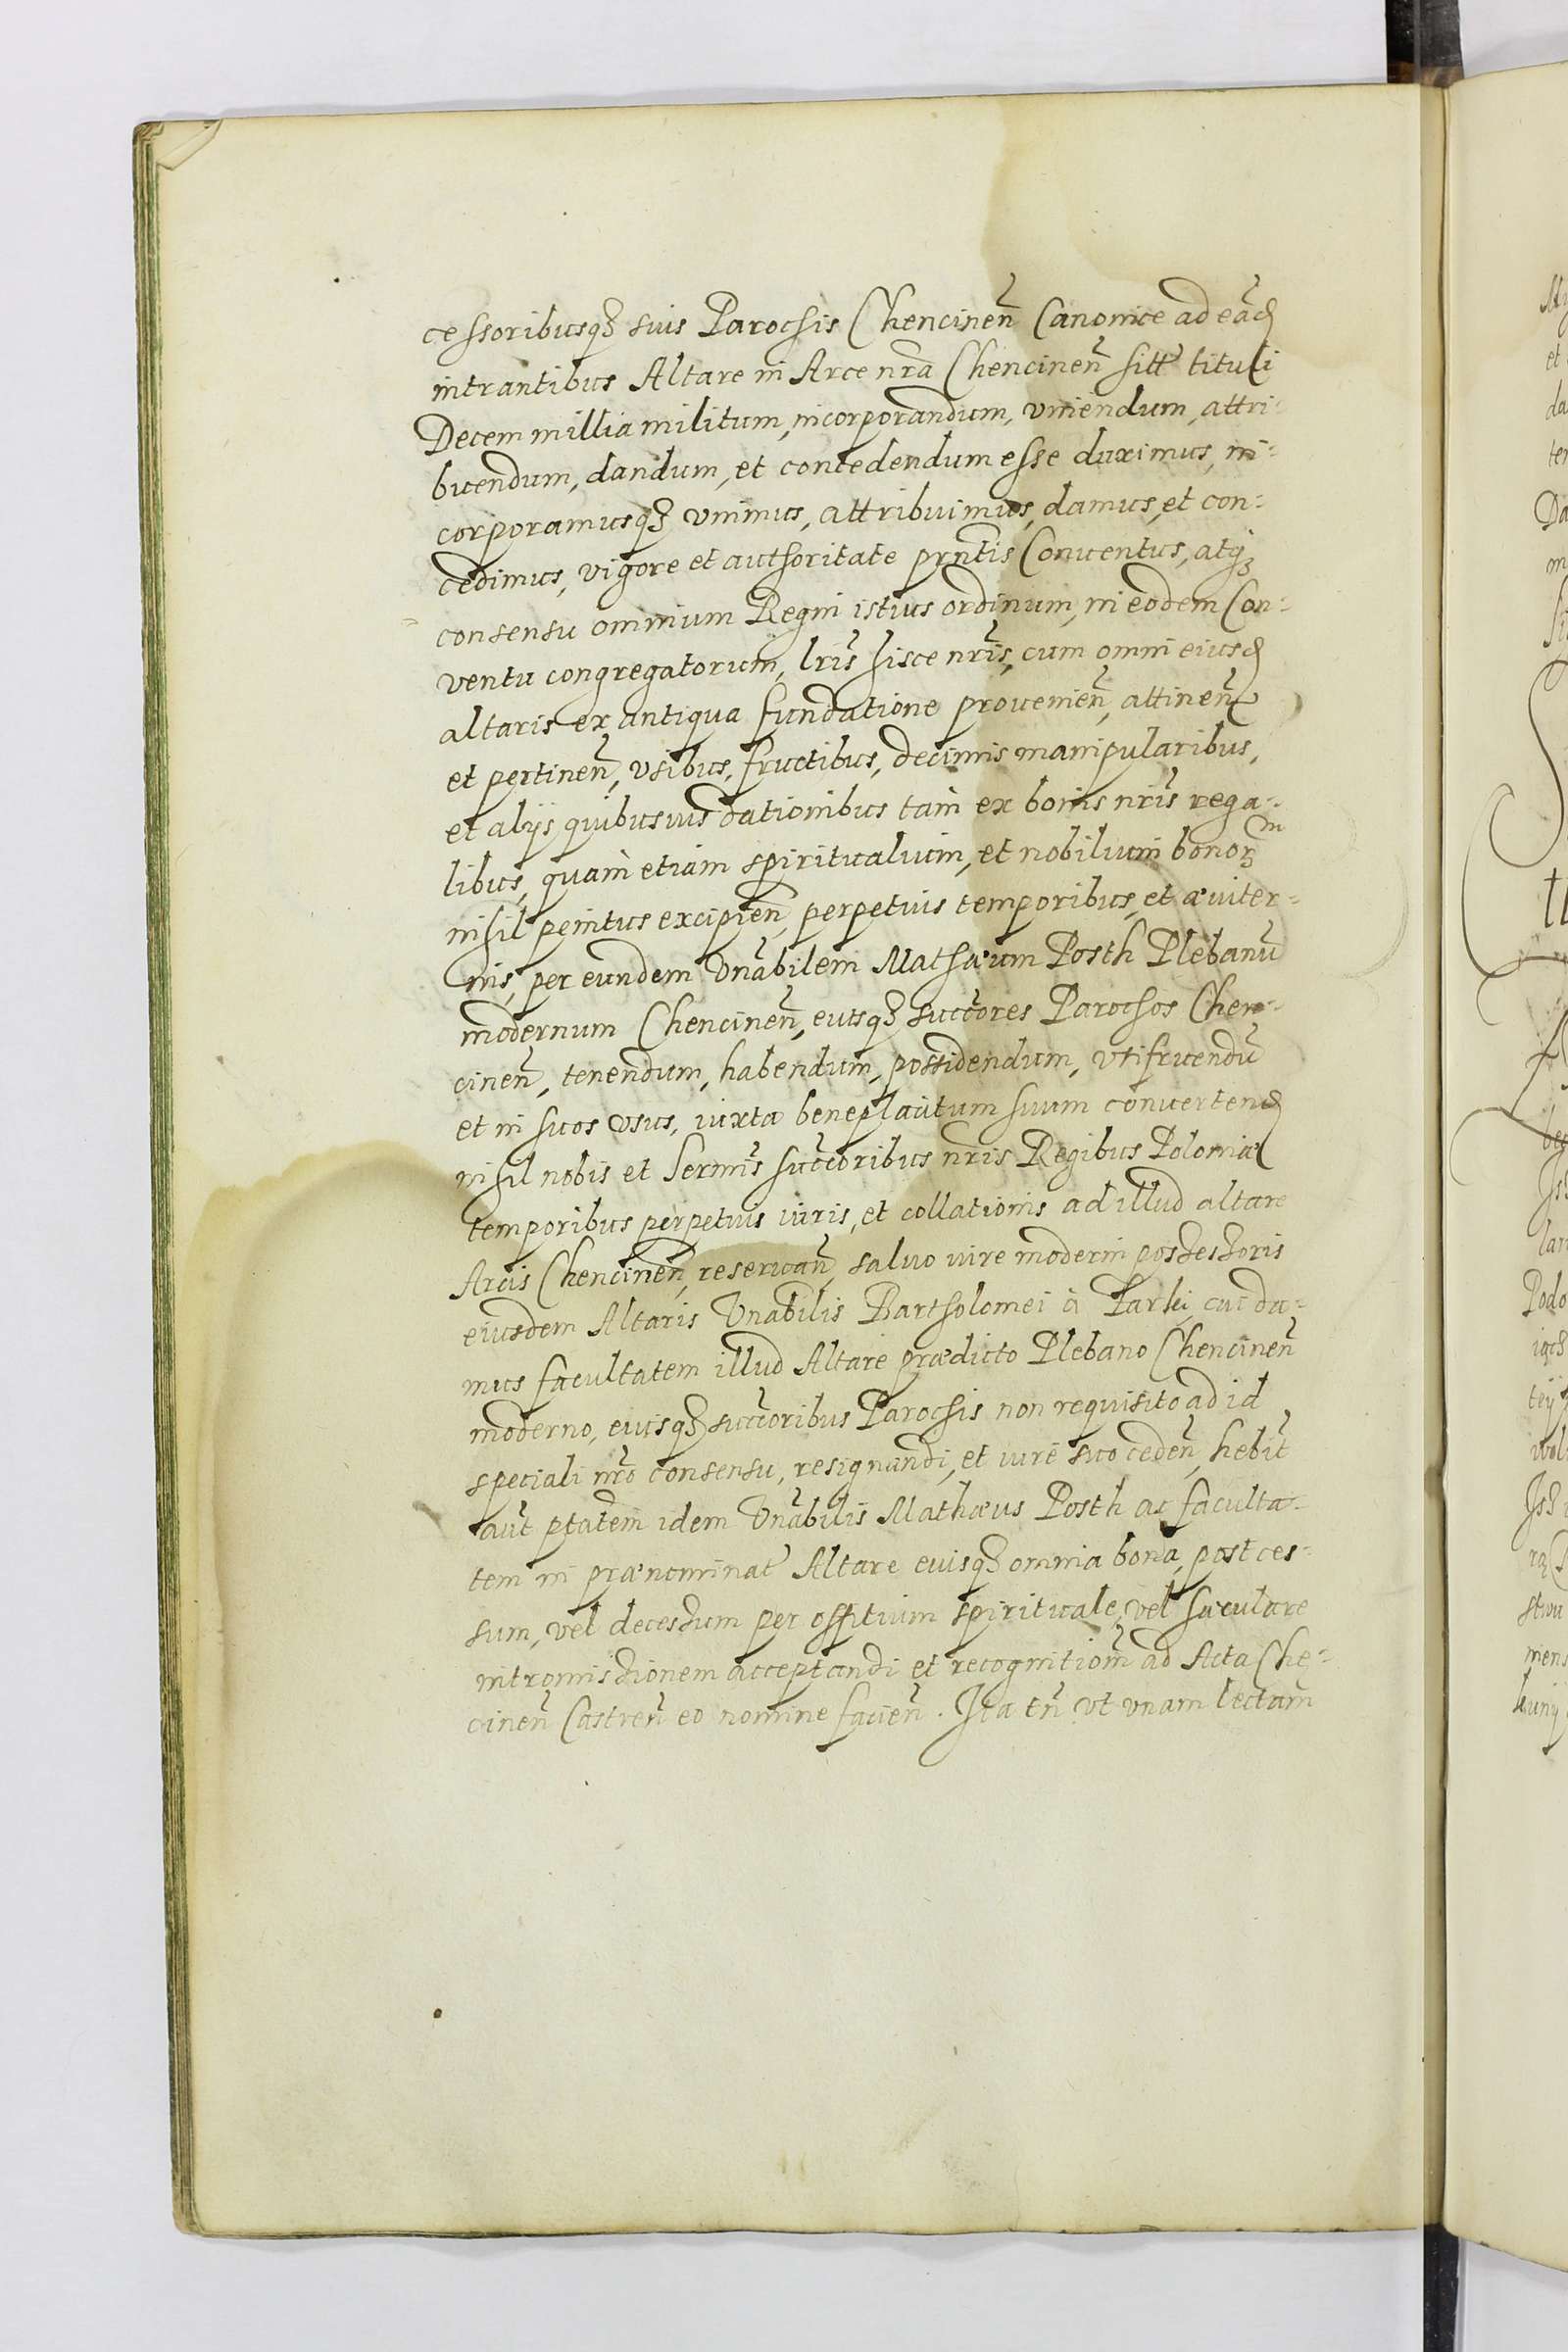 cessoribusqȝ suis Parochis Chencinen̄ Canonice ad eād
intrantibus Altare in Arce nrā Chencinen̄ sitt tituli
Decem millia militum, incorporandum, vniendum, attri-
buendum, dandum, et concedendum esse duximus, in-
corporamusqȝ vnimus, attribuimus, damus, et con-
cedimus, vigore et authoritate prntis Conuentus, atqȝ
consensu omnium Regni istius ordinum, in eodem Con-
ventu congregatorum, lris hisce nris, cum omni eiusd
altaris ex antiqua fundatione prouenien̄, attinen̄
et pertinen̄, vsibus, fructibus, decimis manipularibus,
et alijs quibusuis dationibus tam ex bonis nris rega-
libus, quam etiam spiritualium, et nobilium bonorȝm
nihil penitus excipien̄, perpetuis temporibus, et æuiter-
nis, per eundem Vnābilem Mathæum Posth Plebanū
modernum Chencinen̄, eiusqȝ succōres Parochos Chen-
cinen̄, tenendum, habendum, possidendum, vtifruendū
et in suos vsus, iuxta beneplacitum suum conuertend
nihil nobis et Sermis succōribus nris Regibus Poloniæ
temporibus perpetuis iuris, et collationis ad illud altare
Arcis Chencinen̄, reseruan̄, saluo iure moderni possessoris
eiusdem Altaris Vnabilis Bartholomei à Parki, cui da-
mus facultatem illud Altare prædicto Plebano Chencinen̄
moderno, eiusqȝ succōribus Parochis non requisito ad id
speciali nrō consensu, resignandi, et iure suo ceden̄, hebit
aūt ptatem idem Vnābilis Mathæus Posth ac faculta-
tem in prænominat Altare eiusqȝ omnia bona, post ces-
sum, vel decessum per offitium spirituale, vel sæculare
intromissionem acceptandi et recognitiom̄ ad Acta Che-
cinen̄ Castren̄ eo nomine facien̄. Ita tn̄ vt vnam lectam